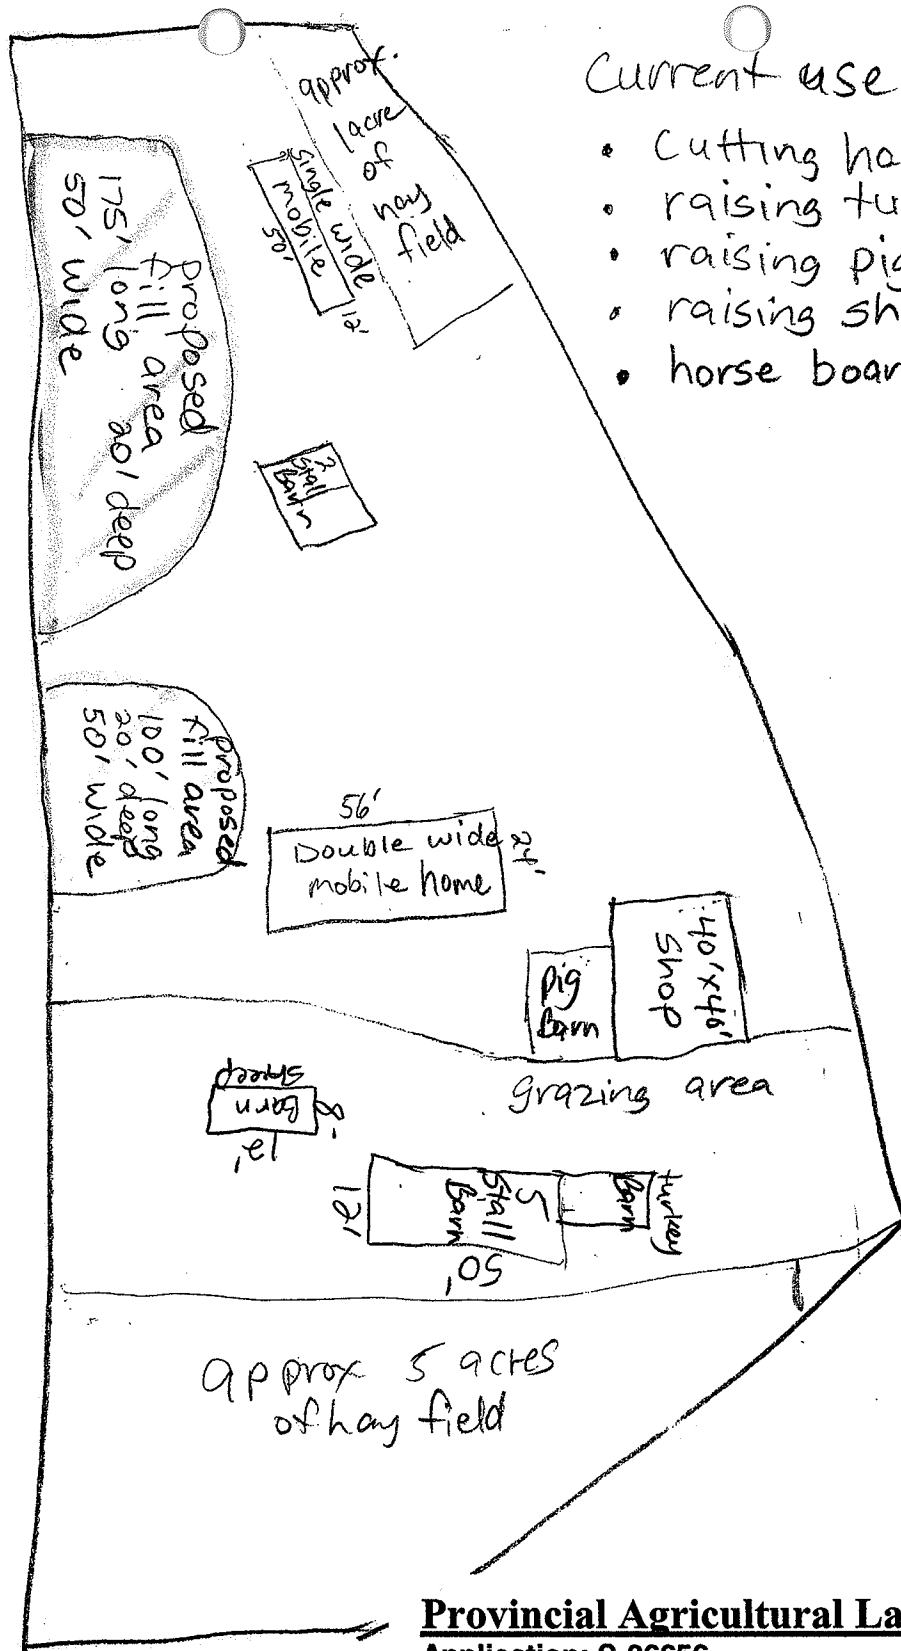 Current use
• Cutting ha
• raising tu
• raising pig
• raising sh
• horse boar
approx.
1acre
of
hay
field
single wide
mobile
50'
12'
Proposed
fill area
175' long 20' deep
50' wide
2
stall
Barn
Proposed
fill area
100' long
20' deep
50' wide
56'
24'
Double wide
mobile home
40'x40'
Shop
pig
Barn
grazing area
sheep
Barn
8'
12'
5
Stall
Barn
12'
50'
turkey
Barn
approx 5 acres
of hay field
Provincial Agricultural La